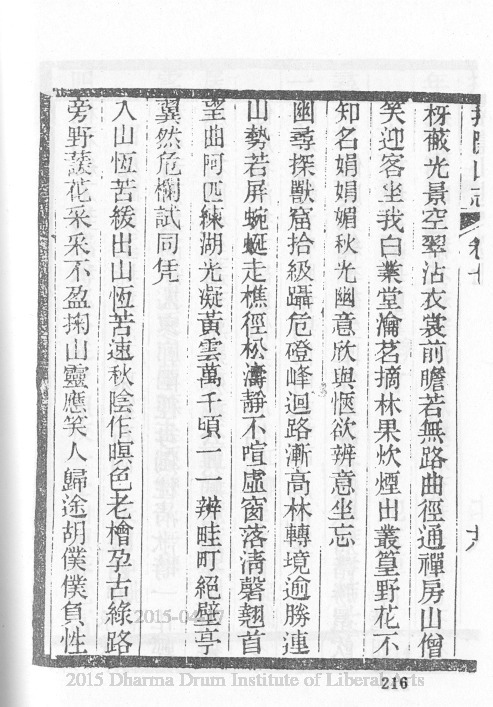 卷七
十六
枒蔽光景空翠沾衣裳前瞻若無路曲徑通禪房山僧
笑迎客坐我白業堂瀹茗摘林果炊煙出叢篁野花不
知名娟娟媚秋光幽意欣與愜欲辨意坐忘
幽尋探獸窟拾級躡危磴峰迴路漸高林轉境逾勝連
山勢若屏蜿蜒走樵徑松濤靜不喧虛窗落清磬翹首
望曲阿匹練湖光凝黃雲萬千頃一一辨畦町絕壁亭
翼然危欄試同凭
入山恆苦緩出山恆苦速秋陰作暝色老檜孕古綠路
旁野蔬花采采不盈掬山靈應笑人歸途胡僕僕負性
2015 Dharma Drum Institute of Liberal Arts
216